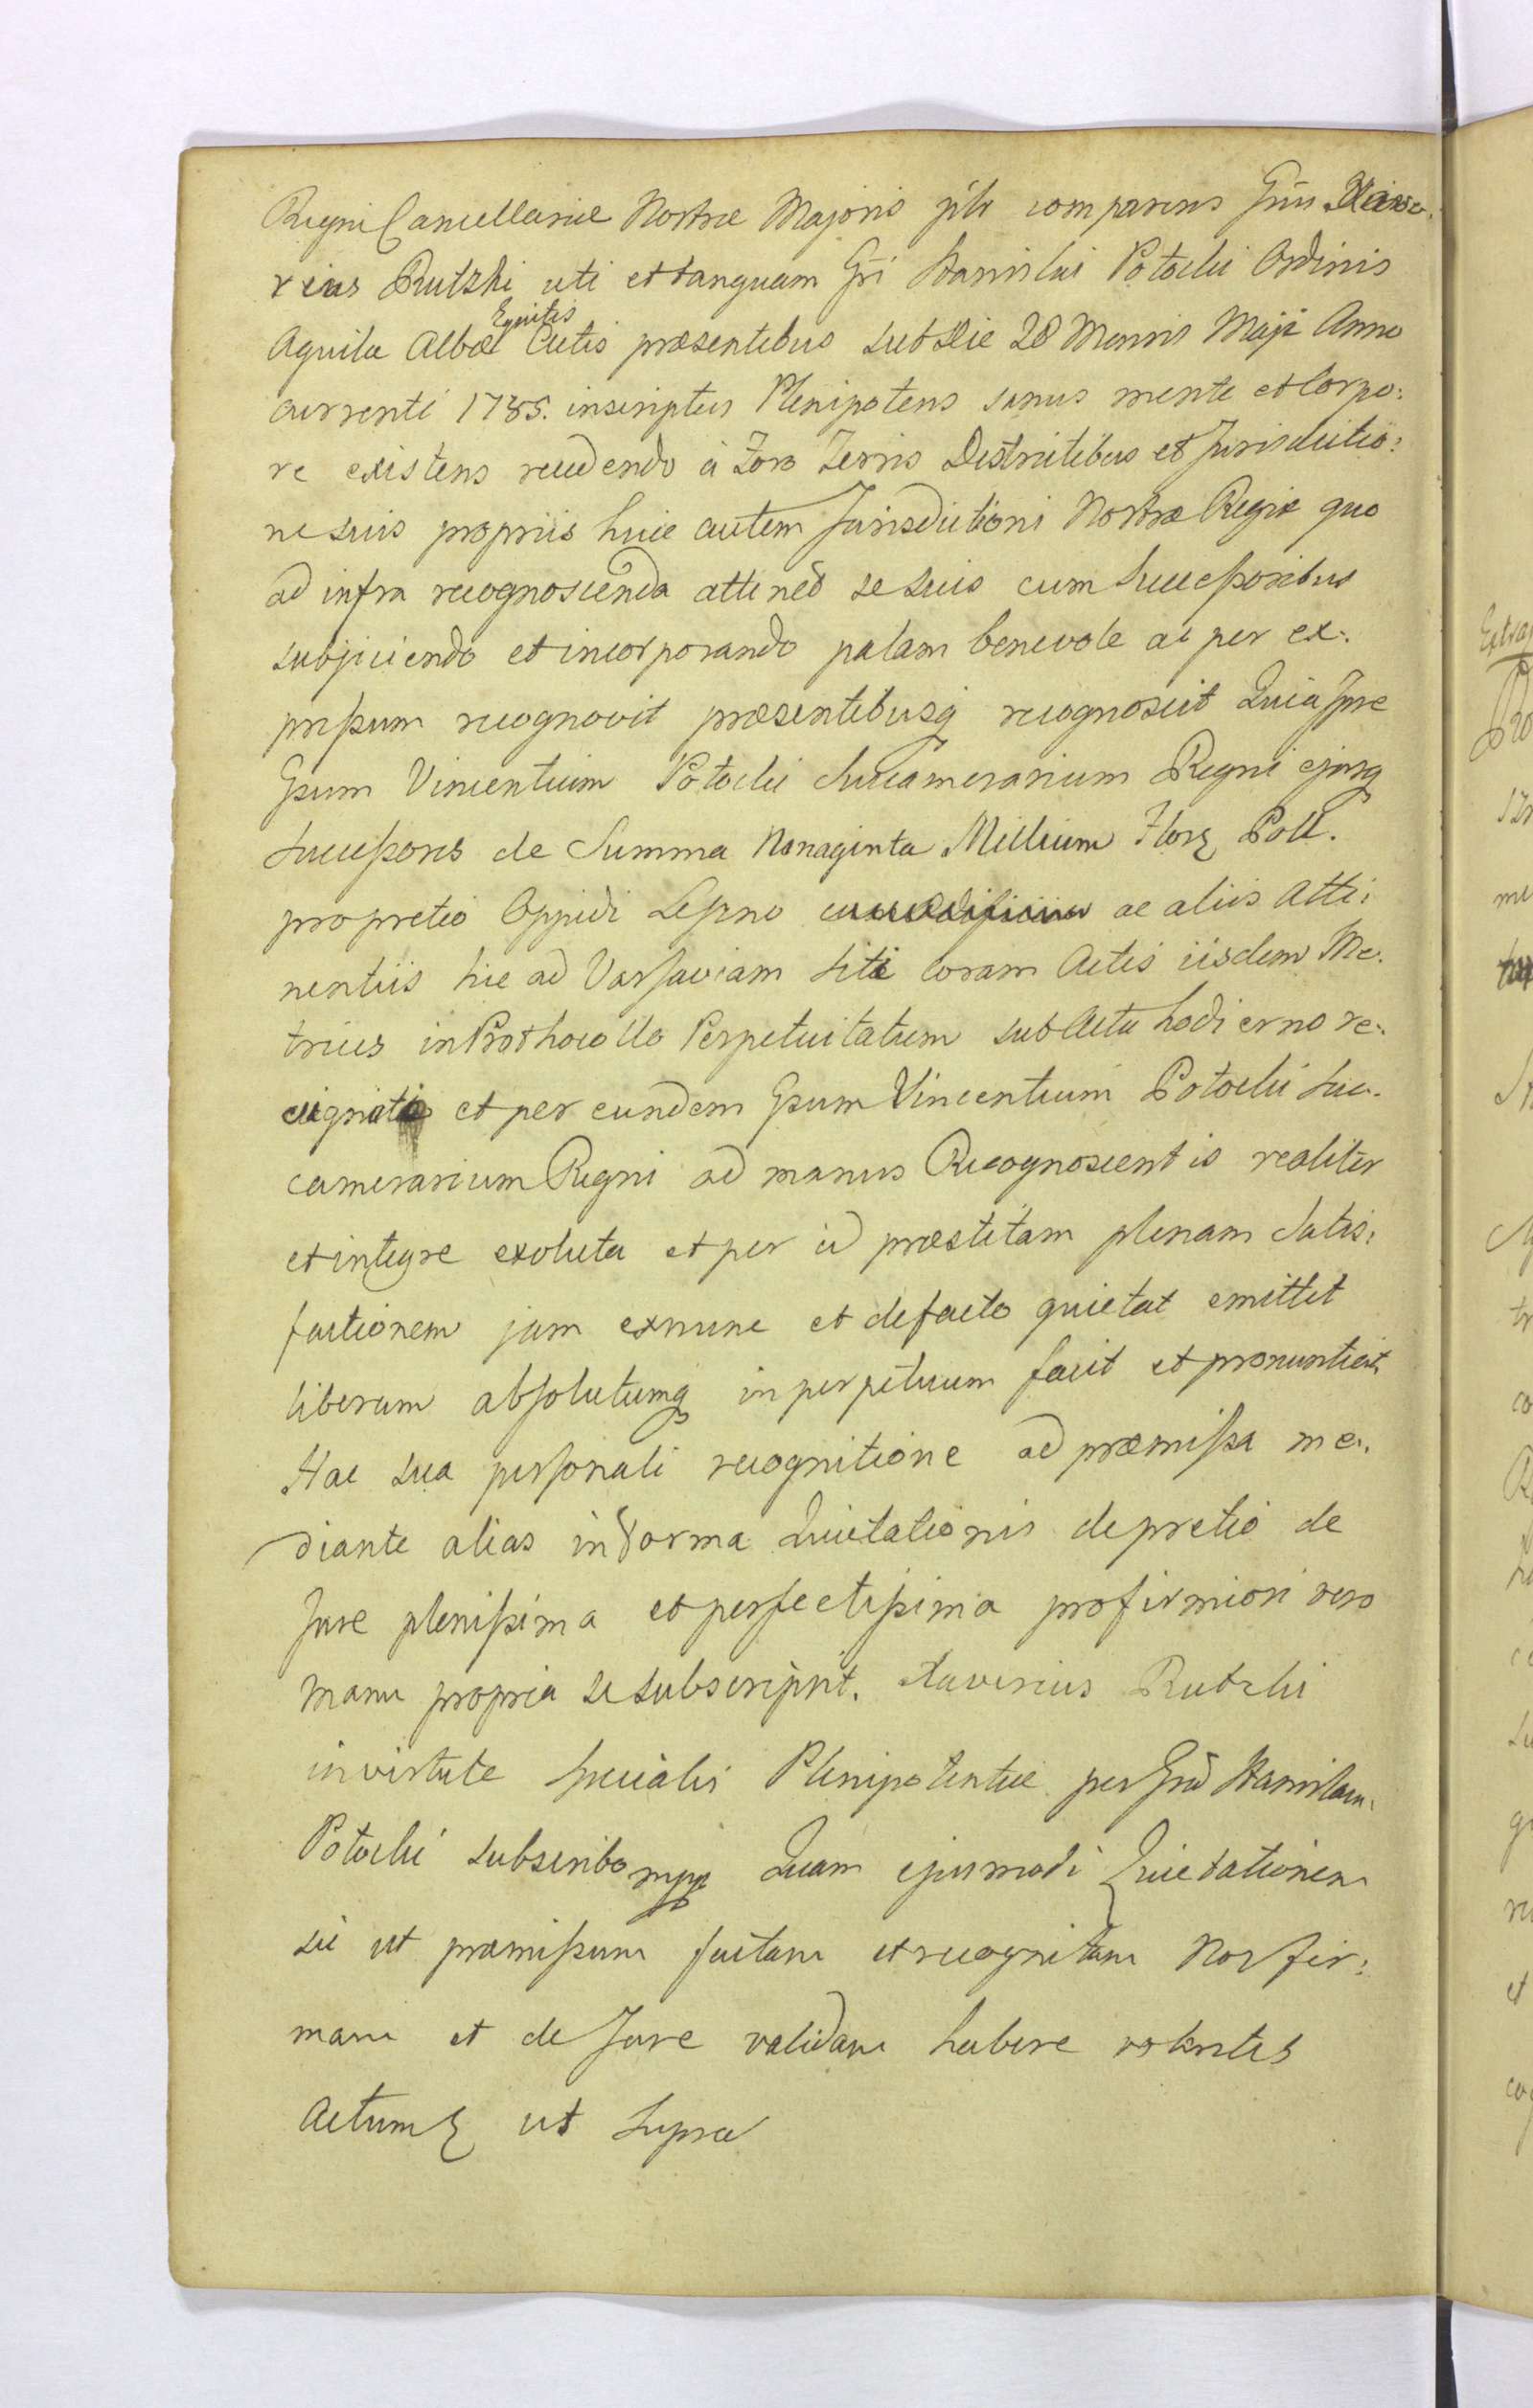 Regni Cancellariæ Nostræ Majoris plr comparens Gnus Xave-
rius Rutzki uti et tanquam Gñi Stanislai Potocki Ordinis
Aquilæ Albæ Equitis Actis præsentibus sub Die 28 Mensis Maji Anno
currenti 1785. inscriptus Plenipotens sanus mente et Corpo:
re existens recedendo à Foro Terris Districtibus et Jurisdictio:
ne suis propriis huic autem Jurisdictioni Nostræ Regiæ quo
ad infra recognoscenda attinet se suis cum Successoribus
subjiciendo et incorporando palam benevole ac per ex:
pressum recognovit præsentibusq recognoscit Quia Ipse
Gsum Vincentium Potocki Succamerarium Regni ejusq
Successores de Summa Nonaginta Millium Flor Poll.
pro pretio Oppidi Leszno ac aliis Atti:
nentiis hic ad Varsaviam siti coram Actis iisdem Me:
trices in Prothocollo Perpetuitatum sub Actu hodierno re:
signati et per eundem Gsum Vincentium Potocki Suc-
camerarium Regni ad manus Recognoscentis realiter
et integre exoluta et per id præstitam plenam Satis:
factionem jam exnunc et defacto quietat emittit
liberum absolutumq in perpetuum facit et pronuntiat
Hac sua personali recognitione ad præmissa me:
diante alias in Forma Quietationis de pretio de
Jure plenissima et perfectissima pro firmiori vero
manu propria se subscripsit. Xaverius Rutzki
in virtute specialis Plenipotentiæ per Gnũ Stanislaum
Potocki subscribo mpp Quam ejusmodi Quietationem
sic ut præmissum factam et recognitam Nos fir:
mam et de Jure validam habere volentes
Actum ut Supra